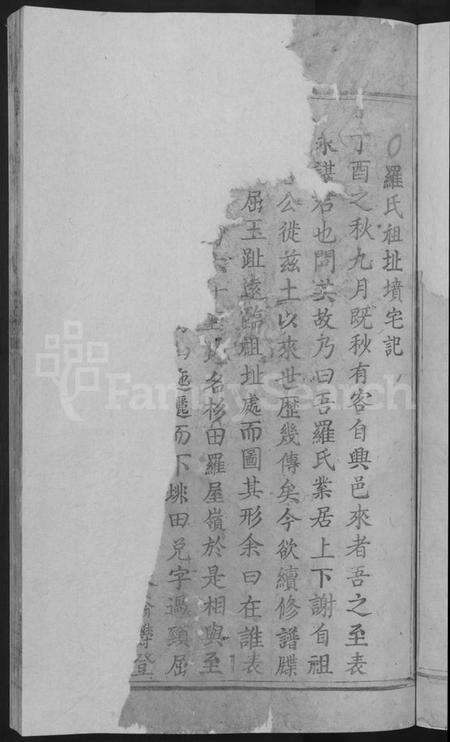 羅氏祖址墳宅記
丁酉之秋九月既秋有客自興邑來者吾之至表
君也問其故乃曰吾羅氏業居上下謝自祖
公徙茲土以來世歷幾傳矣今欲續修譜牒
屈玉趾遠臨祖址處而圖其形余曰在誰表
名杉田羅屋嶺於是相與至
迤邐而下垗田兌字過頸屈
登
FamilySearch